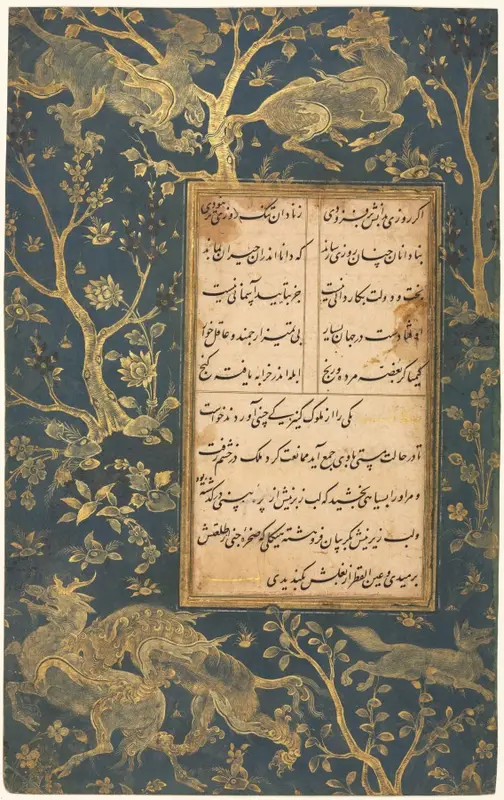 اگر روزی بدانش بر فزودی ز نادان تنک روزی تر نبودی
بنادانان چنان روزی رساند که دانا اندران حیران بماند
بخت و دولت بکاردانی نیست جز بتایید آسمانی نیست
اوفتادست در جهان بسیار بی تمیز ارجمند و عاقل خوار
کیمیاگر بغصه مرده و رنج ابله اندر خرابه یافته گنج
یکی را از ملوک کنیزکی چینی آوردند خواست
تا در حالت مستی با وی جمع آید ممانعت کرد ملک در خشم رفت
و مر او را بسیاهی بخشید که لب زبرینش از پره بینی در گذشته بود
و لب زیرینش بگریبان فرو هشته هیکلی که صخره جنی از طلعتش
برمیدی و عین القطر از بغلش بگندیدی